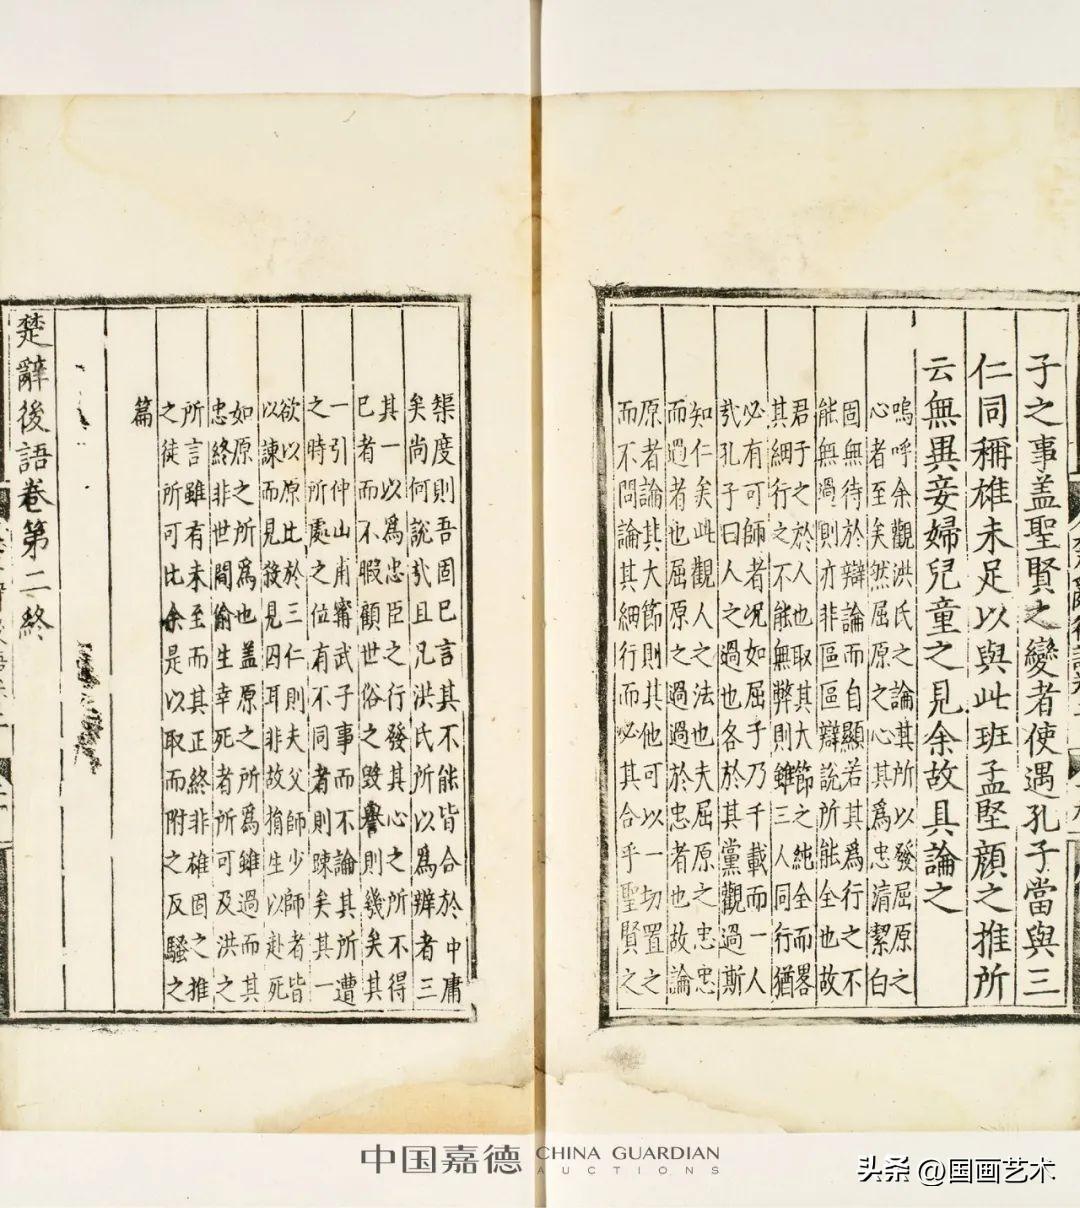 子之事盖聖賢之變者使遇孔子當與三
仁同稱雄未足以與此班孟堅顔之推所
云無異妾婦兒童之見余故具論之
嗚呼余觀洪氏之論其所以發屈原之
心者至矣然屈原之心其爲忠清潔白
固無待於辯論而自顯若其爲行之不
能無過則亦非區區辯說所能全也故
君子之於人也取其大節之純全而畧
其細行之不能無弊則雖三人同行猶
必有可師者况如屈子乃千載而一人
哉孔子曰人之過也各於其黨觀過斯
知仁矣此觀人之法也夫屈原之忠忠
而過者也屈原之過過於忠者也故論
原者論其大節則其他可以一切置之
而不問論其細行而必其合乎聖賢之
榘度則吾固已言其不能皆合於中庸
矣尚何說哉且凡洪氏所以爲辨者三
其一以爲忠臣之行發其心之所不得
已者而不暇顧世俗之毀譽則幾矣其
一引仲山甫甯武子事而不論其所遭
之時所處之位有不同者則踈矣其一
欲以原比於三仁則夫父師少師者皆
以諫而見殺見囚耳非故捐生以赴死
如原之所爲也盖原之所爲雖過而其
忠終非世間偷生幸死者所可及洪之
所言雖有未至而其正終非雄固之推
之徒所可比余是以取而附之反騷之
篇
楚辭後語卷第二終
中国嘉德 CHINA GUARDIAN
AUCTIONS
头条 @国画艺术